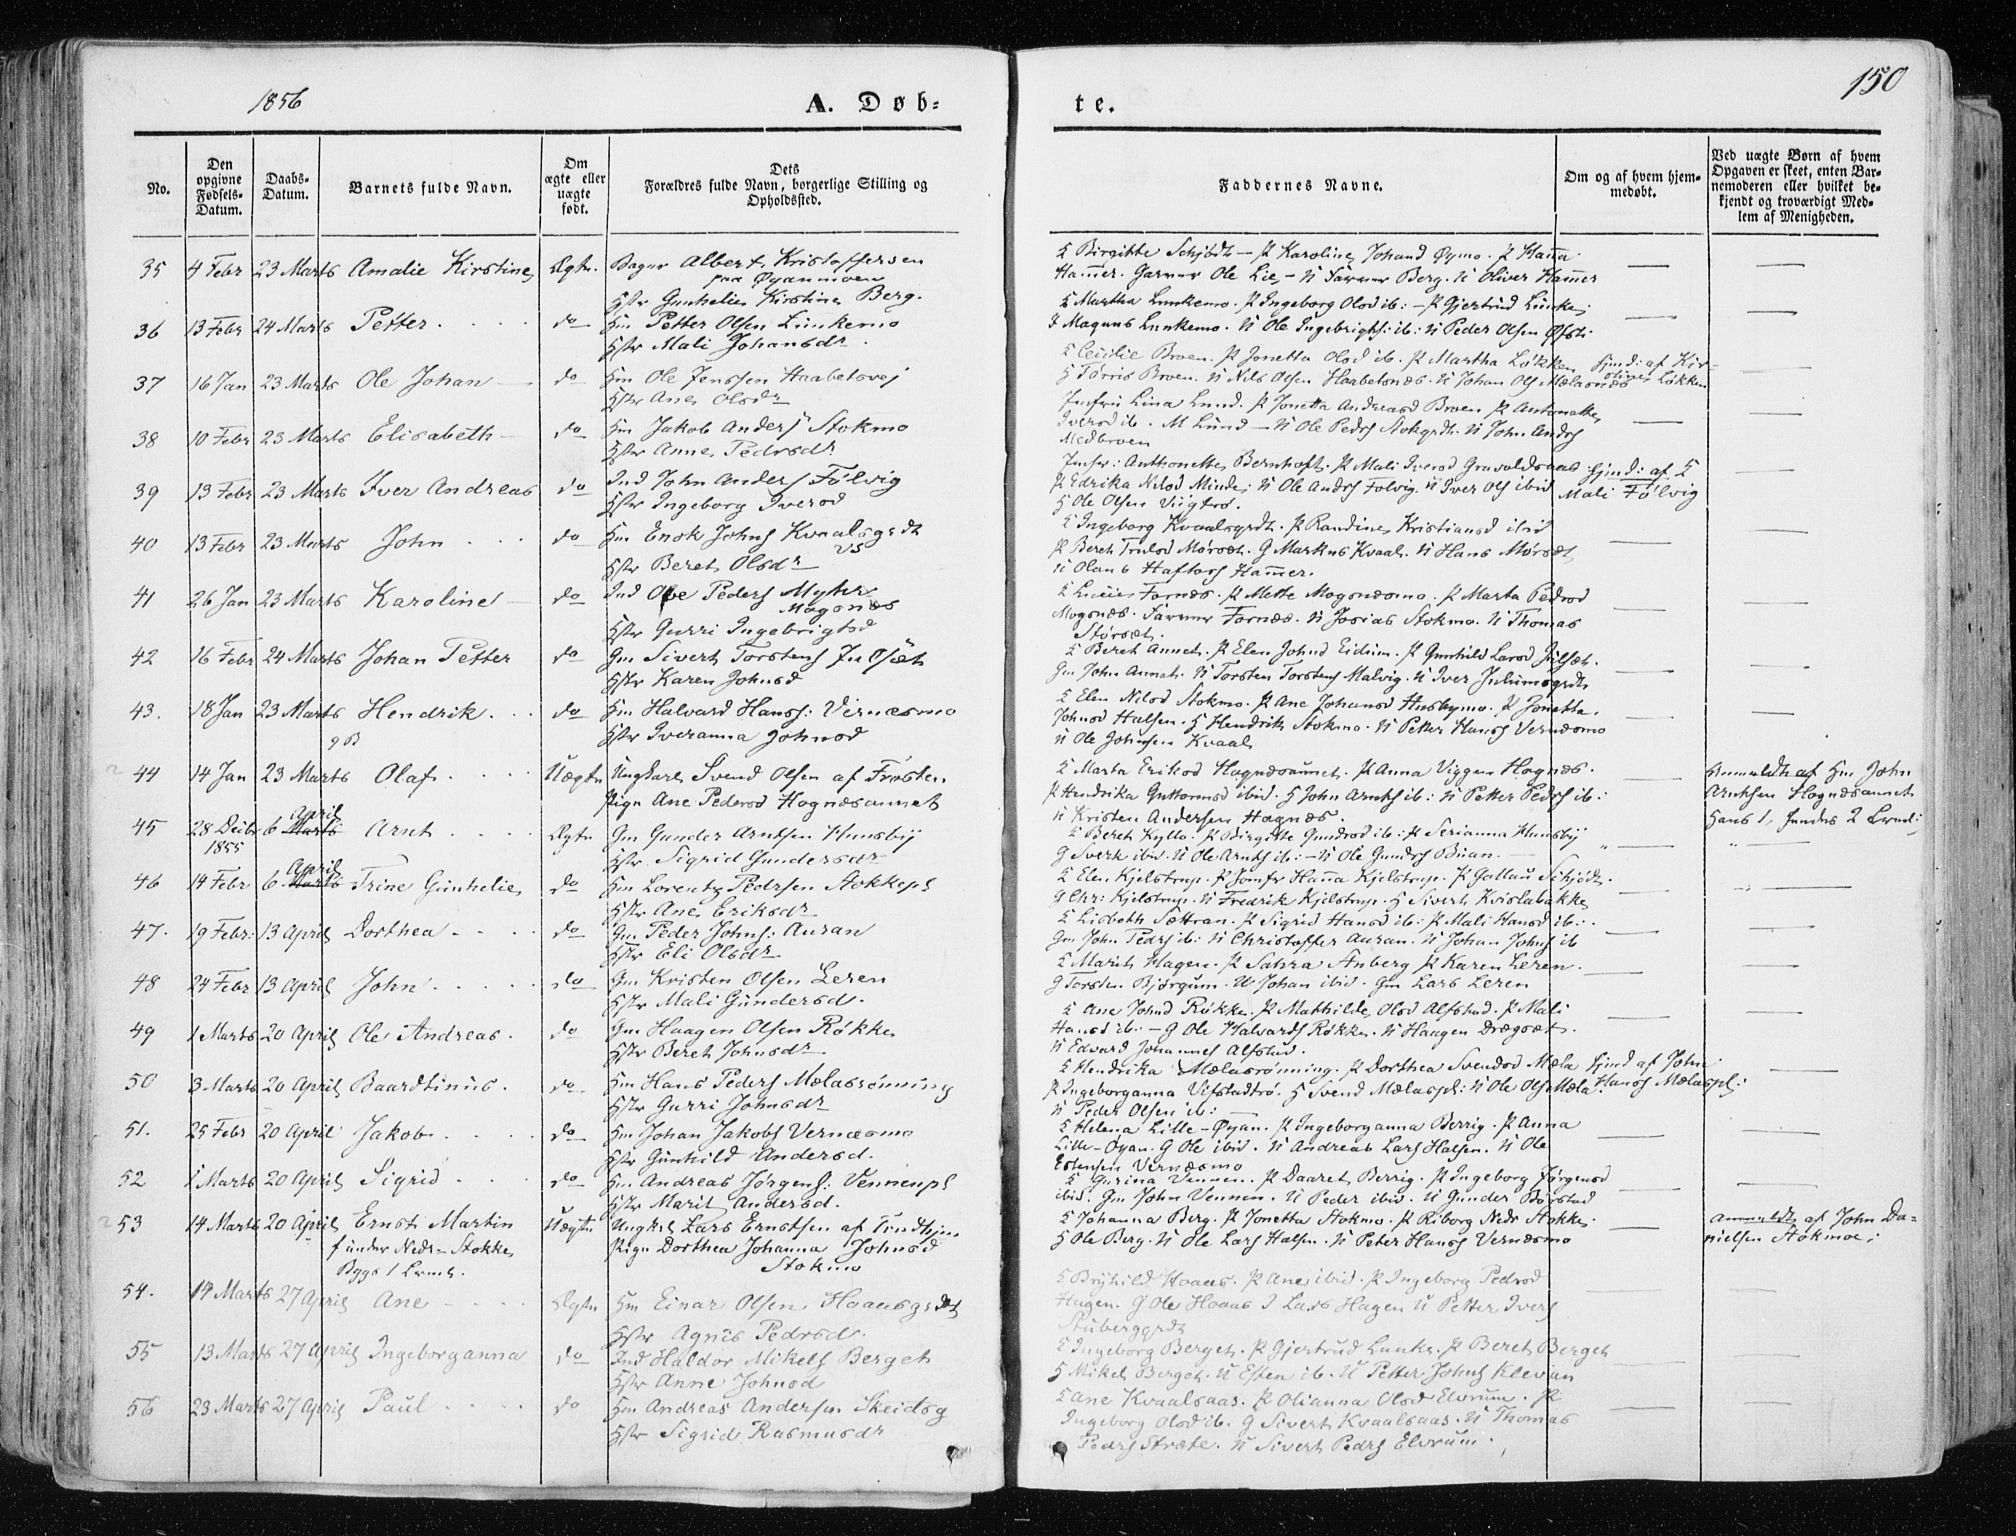 1856
A. Døb=
te.
150
No.
Den opgivne Fødsels-Datum.
Daabs-Datum.
Barnets fulde Navn.
Om ægte eller uægte født.
Dets Forældres fulde Navn, borgerlige Stilling og Opholdssted.
Faddernes Navne.
Om og af hvem hjemmedøbt.
Ved uægte Børn af hvem Opgaven er skeet, enten Barnemoderen eller hvilket bekjendt og troværdigt Medlem af Menigheden.
35 4 Febr 23 Marts Amalie Kirstine Ægte. Bager Albert Kristoffersen
paa Øyanmoen
Hstr Gunhelie Kirstine Berg.
K Birgitte Schjödt — P Karoline Johansd Øymo. P Hanna
Hamer. Garver Ole Lie, — U Farver Berg. U Oliver Hamer
36 13 Febr 24 Marts Petter. do Hm Petter Olsen Lunkemo
Hstr Mali Johansdr
K Martha Lunkemo. P Ingeborg Olsd ib: — P Gjertrud Lunke;
Magnus Lunkemo. U Ole Ingebrigts: ib: U Peder Olsen Øfsti
37 16 Jan 23 Marts Ole Johan do Hm Ole Jenssen Haabetsvej
Hstr Ane Olsdr
K Cecilie Broen. P Jonetta Olsd ib. P Martha Løkken Hjmd: af Kir-
stine Løkken
G Tørris Broen. U Nils Olsen Haabetsnæs. U Johan Ols Mælasnæs
38 10 Febr 23 Marts Elisabeth do Hm Jakob Anders Stokmo
Hstr Anne Pedersdr
Jmfru Lina Lund. P Jonetta Andreasd Broen P Antonette
Iversd ib. M Lund — U Ole Peders Stokgrdt. U John Anders
Medbroen
39 13 Febr 23 Marts Iver Andreas do Ind John Anders Følvig
Hstr Ingeborg Iversd
Jmfr: Anthonette Bernhoft. P Mali Iversd Gravaldsaas Hjmd: af K
Mali Følvig
P Edrika Nilsd Minde; U Ole Anders Følvig. U Iver Ols ibid
G Ole Olsen Viigtrø.
40 13 Febr 23 Marts John do Hm Enok Johns Kvaalsgrdt
vs
Hstr Beret Olsdr
K Ingeborg Kvaalsgrdt. P Randine Kristiansd ibid
P Beret Trulsd Mørset. G Markus Kvaal. U Hans Mørset
U Olaus Haftors Hamer.
41 26 Jan 23 Marts Karoline do Ind Ole Peders Myhr
Mogsnæs
Hstr Gurri Ingebrigtsd
K Lucie Fornæs. P Mette Mogsnæsmo. P Marta Pedrsd
Mogsnæs. Farver Fornæs. U Josias Stokmo. U Thomas
Størset.
42 16 Febr 24 Marts Johan Petter do Gm Sivert Torstens Julset
Hstr Karen Johnsd
K Beret Annet. P Elen Johnsd Eidum. P Gunhild Larsd Julset.
Gm John Annet. U Torsten Torstens Malvig. U Iver Julumsgrdt
43. 18 Jan 23 Marts Hendrik. do Hm Halvard Hanss: Vernæsmo
Hstr Iveranna Johnsd
K Elen Nilsd Stokmo. P Ane Johansd Husbymo. P Jonetta
Johnsd Halsen. G Hendrik Stokmo. U Petter Hanss Vernæsmo
U Ole Johnsen Kvaal
44 14 Jan 23 Marts Olaf Uægte Ungkarl Svend Olsen af Frosten
Pige Ane Pedersd Hognæsaunet
K Marta Eriksd Hognæsaunet. P Anna Viggen Hognæs.
P Hendrika Guttormsd ibid. G John Arnts ib: U Petter Pedrs ib:
U Kristen Andersen Hognæs.
Anmeldt af Hm John
Arntsen Hognæsaunet
Hans 1, hendes 2 Lermd;
45 28 Decbr 1855 6 April Marts Arnt Ægte Gm Gunder Arntsen Hunsbij
Hstr Sigrid Gundersdr
K Beret Kyllo: P Birgitte Gundrsd ib: P Serianna Hunsbij
G Sverk ibid. U Ole Arnts ib: — U Ole Gunders Buan.
46 14 Febr 6 April Marts Trine Gunhelie do Hm Lorentz Pedersen Stokkepl
Hstr Ane Eriksdr
K Elen Kjelstrup. P Jomfr Hanna Kjelstrup. P Schjødt.
G Chr: Kjelstrup. U Fredrik Kjelstrup. G Sivert Kvislabakke
47. 19 Febr: 13 April Dorthea do Gm Peder Johns: Auran
Hstr Eli Olsdr
K Lisbeth Sættran. P Sigrid Hansd ib: P Mali Hansd ib:
Gm John Pedrs ib: U Christoffer Auran. U Johan Johns ib
48 24 Febr 13 April John do Gm Kristen Olsen Leren
Hstr Mali Gundersd.
K Marit Hagen. P Sahra Stuberg P Karen Leren.
G Torsten Bjørgum. U Johan ibid. Gm Lars Leren
49 1 Marts 20 April Ole Andreas. do Gm Haagen Olsen Røkke
Hstr Beret Johnsdr
K Ane Johnsd Røkke. P Mathilde Olsd Alfstad. P Mali
Hansd ib: — G Ole Halvards Røkke. U Haagen Drægset.
U Edvard Johannes Alfstad.
50 3 Marts 20 April Baardtinus. do Hm Hans Peders Mælasrønning
Hstr Gurri Johnsdr
K Hendrika Mælasrønning. P Dorthea Svendsd Mæla Hjmd af John
Hanss Mælaspl:
P Ingeborganna Vifstadtrø. G Svend Mælaspl: U Ole Ols Mæla.
U Peder Olsen ib:
51. 25 Febr 20 April Jakob do Hm Johan Jakobs Vernæsmo
Hstr Gunhild Andersd.
K Helena Lille-Øyan. P Ingeborganna Berrig. P Anna
Lille-Øyan. G Ole ibid. U Andreas Lars Halsen. U Ole
Estensen Vernæsmo
52 1 Marts 20 April Sigrid do Hm Andreas Jørgens: Vennenpl
Hstr Marit Andersd.
K Gurina Vennen. P Daaret Berrig. P Ingeborg Jørgensd
ibid. Gm John Vennen. U Peder ibid. U Gunder Børstad
53 14 Marts 20 April Ernst Martin Uægte Ungkrl Lars Ernstsen af Trndhjm
f under Nedr-Stokke
Bygs 1 Lermd.
Pige Dorthea Johanna Johnsd
Stokmo
K Johanna Berg. P Jonetta Stokmo. P Riborg Nedr Stokke.
G Ole Berg. U Ole Lars Halsen. U Peter Hanss Vernæsmo
Anmeldt af John Da-
nielsen Stokmoe;
54. 14 Marts 27 April Ane Ægte Hm Einar Olsen Haaasgrdet
Hstr Agnis Pedrsd.
K Brijhild Hoaas. P Ane ibid. P Ingeborg Pedrsd
Hagen. G Ole Hoaas I Lars Hagen U Petter Ivers
Stuberggrdt
55 13 Marts 27 April Ingeborganna do Ind Haldor Mikels Berget
Hstr Anne Johnsd
K Ingeborg Berget. P Gjertrud Lunke. P Beret Berget
G Mikel Berget. U Esten ib. U Petter Johns Klevan
56 23 Marts 27 April Paul do Hm Andreas Andersen Skeidsg
Hstr Sigrid Rasmusdr
K Ane Kvaalsaas. P Olianna Olsd Elvrum. P
Ingeborg Olsd ib. G Sivert Kvaalsaas. U Thomas
Pedrs Stræte. U Sivert Pedrs Elvrum.